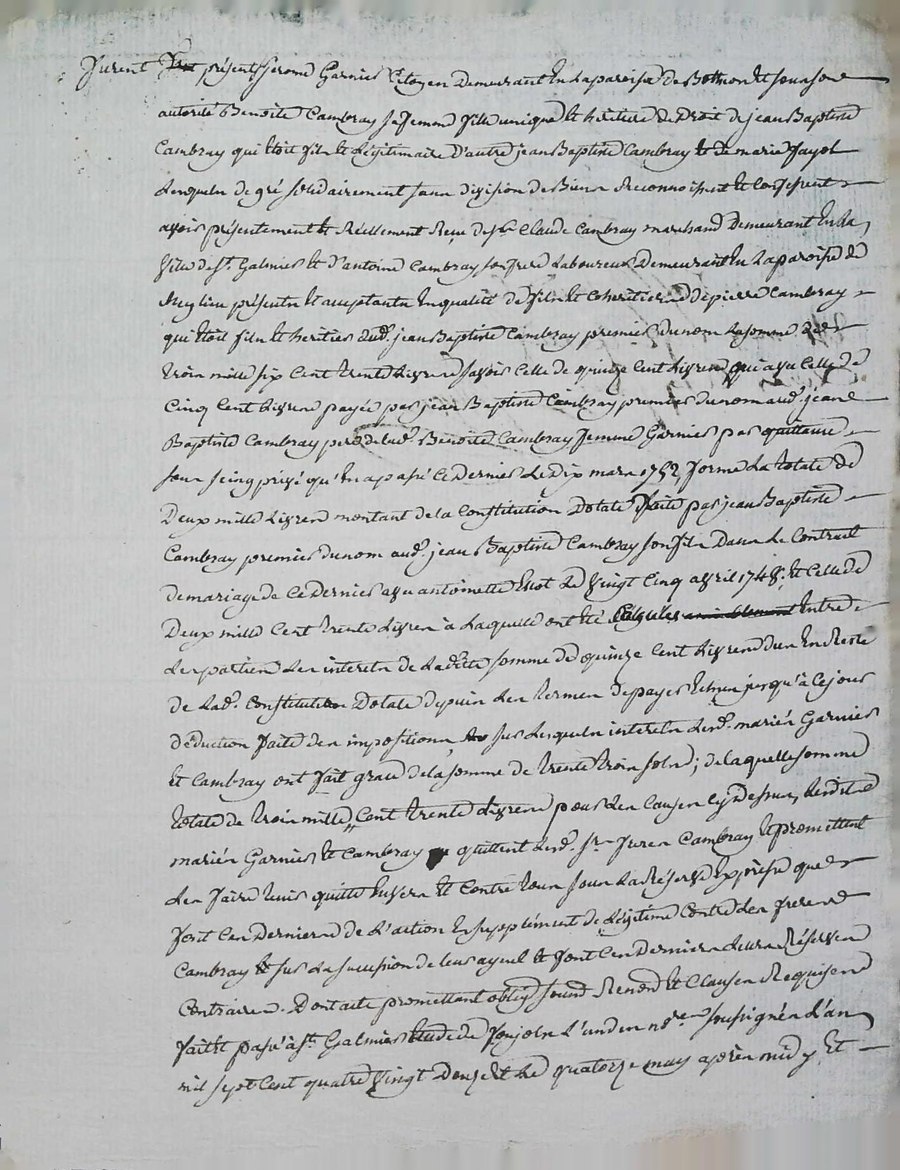 Furent présents Jerome Garnier Citoyen Demeurant En la paroisse de Bothéon Et sous son
autorité Benoite Cambray sa femme fille unique et héritière de Droit de jean Baptiste
Cambray qui étoit fils et Légitimaire D'autre jean Baptiste Cambray et de marie fayol
Lesquels de gré solidairement sans division de Biens Reconnoissent et Confessent
avoir présentement et Réellement Reçu de sr. Claude Cambray marchand Demeurant En la
ville de st. Galmier et d'antoine Cambray son frere Laboureur Demeurant En la paroisse de
présents et acceptants En qualité de fils et Cohéritiers de pierre Cambray
qui étoit fils et heritier dud. jean Baptiste Cambray premier du nom La somme de
trois mille six Cent trente Livres savoir Celle de quinze Cent Livres qui avec Celle de
Cinq Cent Livres payée par jean Baptiste Cambray premier du nom aud. jean
Baptiste Cambray pere de lad. Benoite Cambray femme Garnier par quittance
sous seing privé qu'En a passé Ce Dernier Le Dix mars 1752, forme La totale de
Deux mille Livres montant de la Constitution Dotale faite par jean Baptiste
Cambray premier du nom aud. jean Baptiste Cambray son fils Dans Le Contrat
de mariage de Ce Dernier avec antoinette Le vingt Cinq avril 1748. Et Celle de
Deux mille Cent trente Livres à Laquelle ont été Entre
Les parties Les interets de Ladite somme de quinze Cent Livres due En Reste
de Lad. Constitution Dotale depuis Les termes de payer Echus jusqu'à Ce jour
déduction faite des impositions sur Lesquels interets Lesd. mariés Garnier
Et Cambray ont fait grace de la somme de trente trois sols; de laquelle somme
totale de trois mille Cent trente Livres pour Les Causes Cy Dessus, Lesdits
mariés Garnier et Cambray quittent Lesd. srs. freres Cambray et promettent
Les faire tenir quittes Envers Et Contre tous sous La Réserve Expresse que
font Ces Derniers de L'action En supplément de Légitime Contre Les freres
Cambray et sur La succession de leur ayeul et font Ces Derniers Leurs Réserves
Contraires. Dont acte promettant obligt. soumd. Renond. Et Clauses Requises
fait et passé à st. Galmier Etude de L'un des nres. soussignés L'an
mil sept Cent quatre vingt Douze Et Le quatorze may après midy, Et